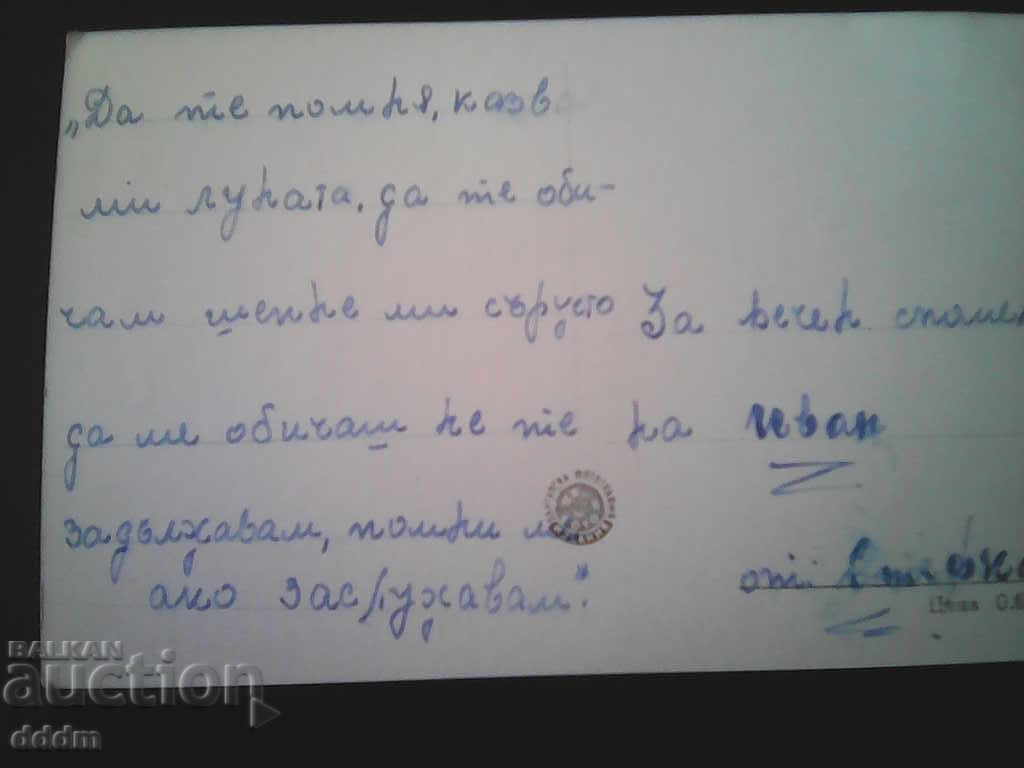 „Да те помня, казв
ми луната, да те оби-
чам шепне ми сърусто
да ме обичаш не те
задължавам, помни ме
ако заслужавам."
За вечен спомен
на Иван
от
Цена 0.
BALKAN
auction
dddm